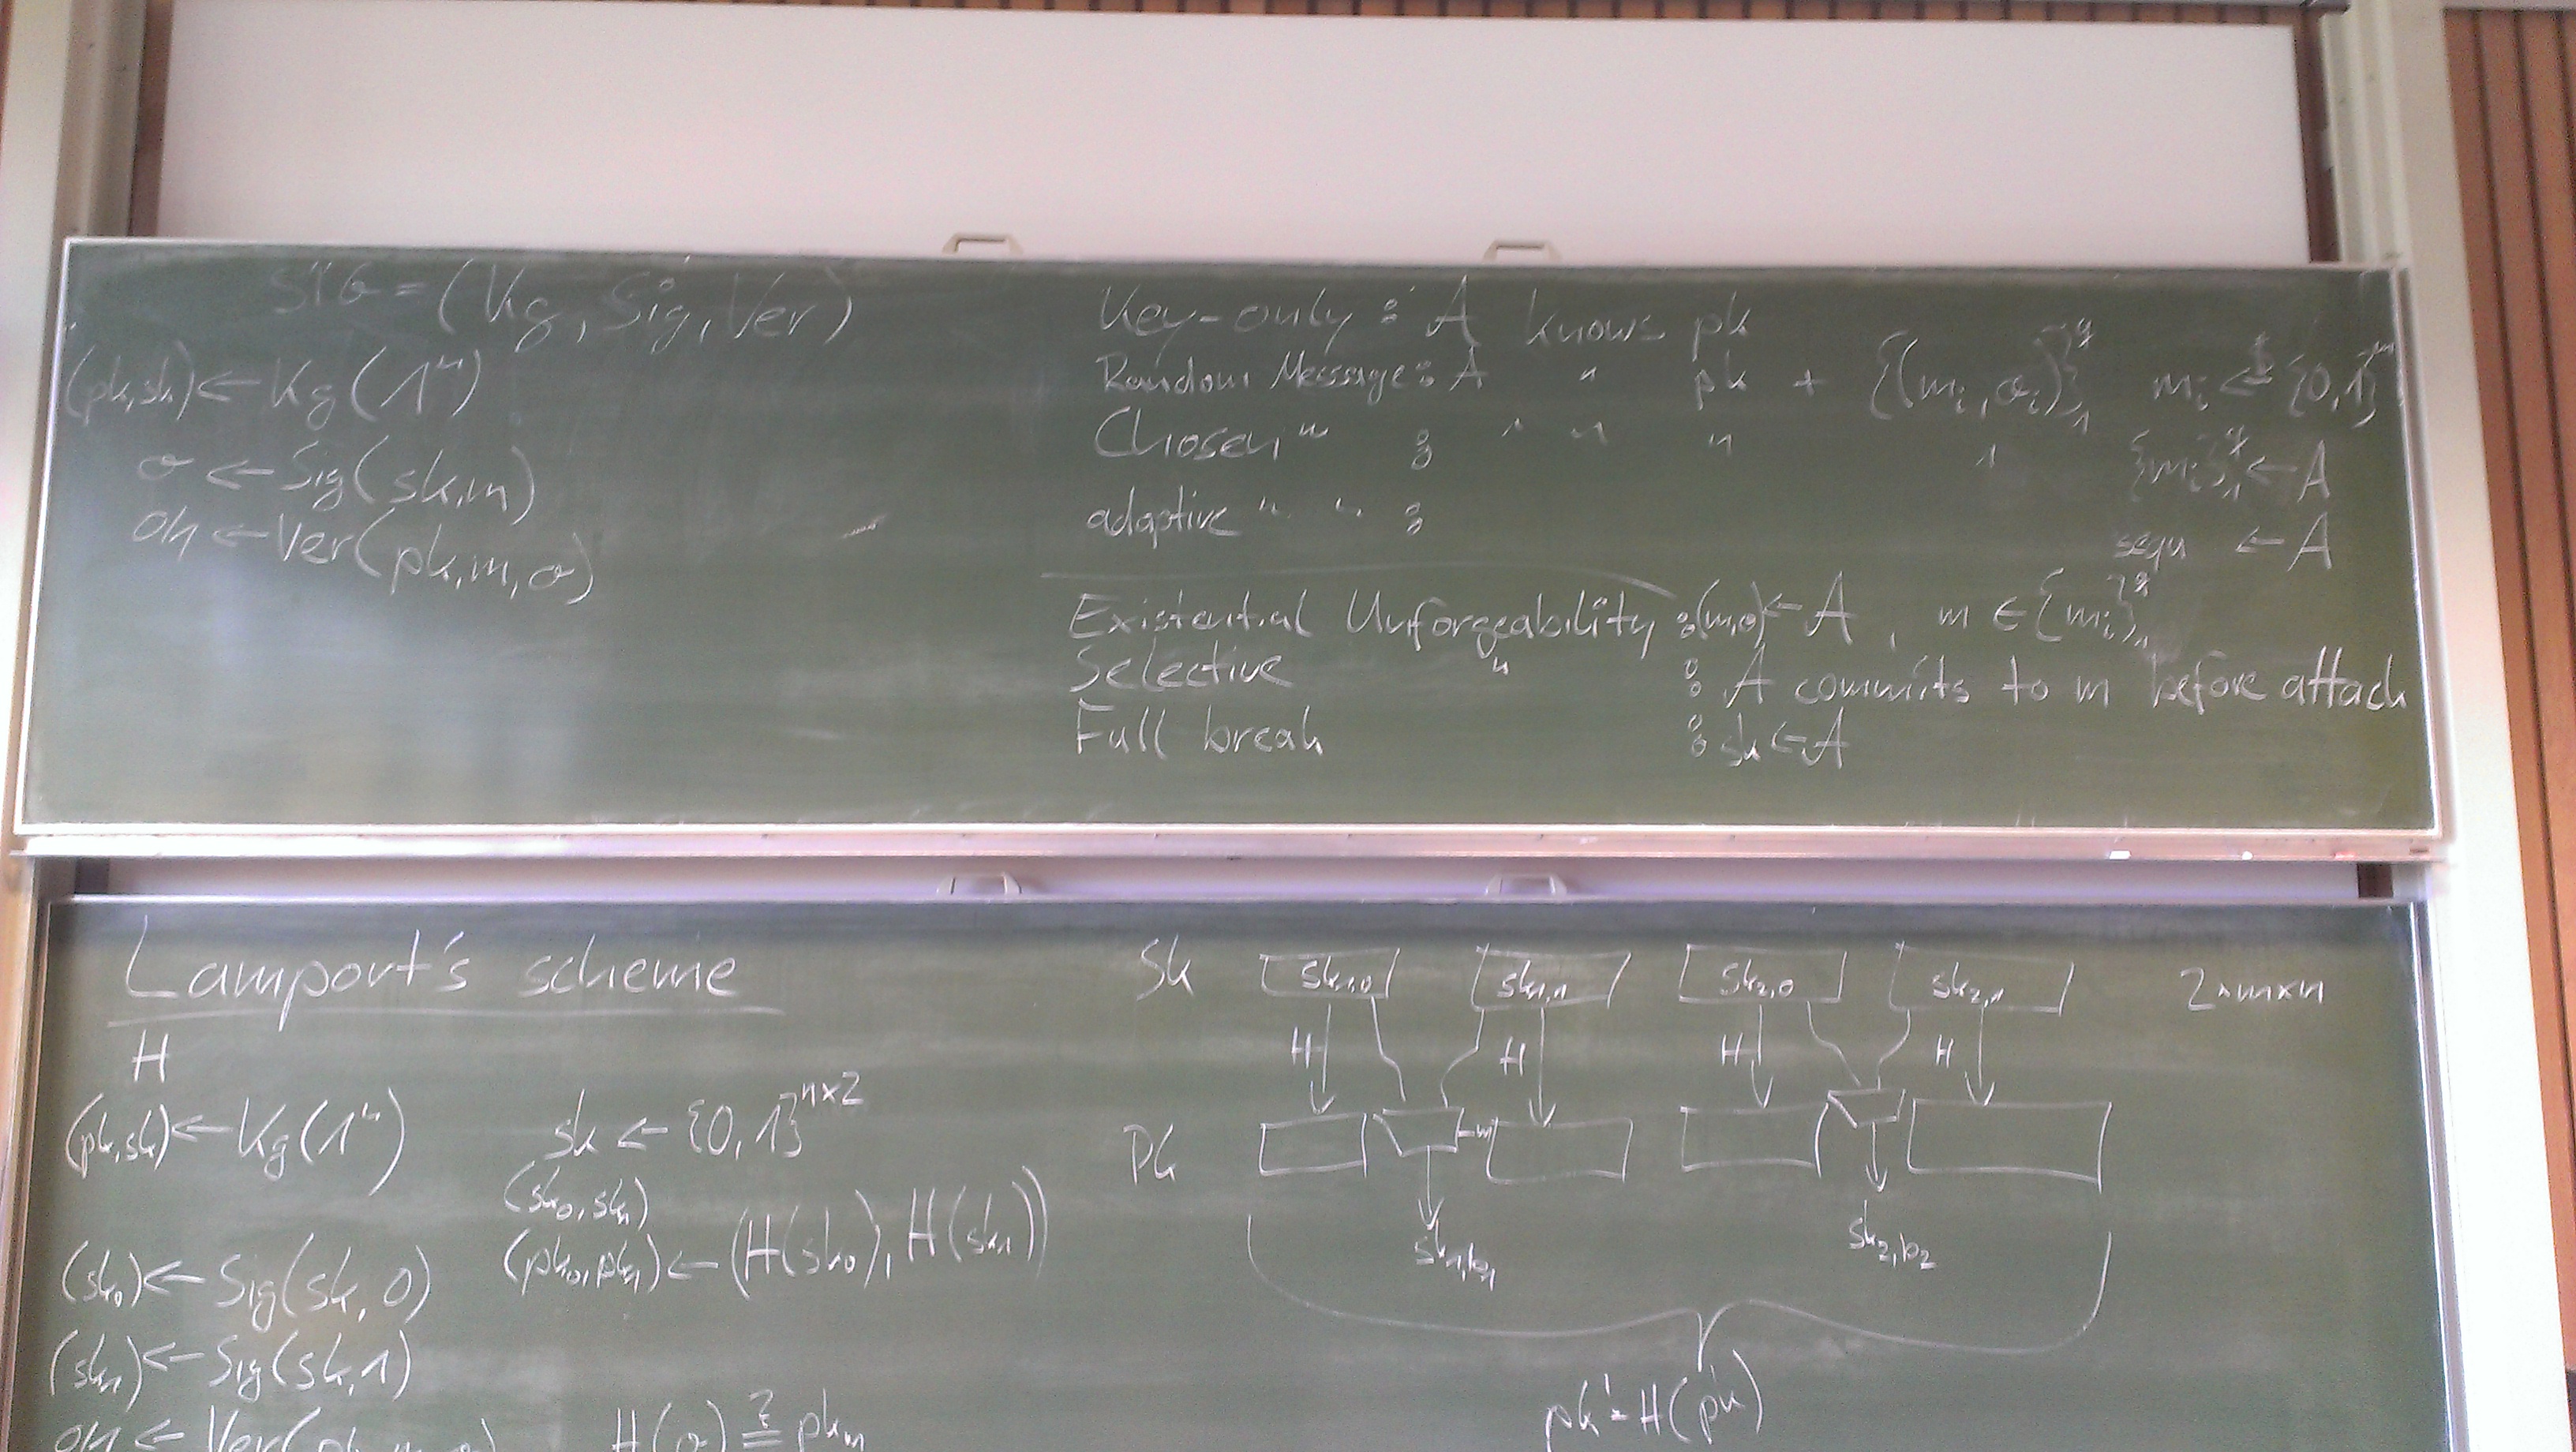 SIG = (Kg, Sig, Ver)
(pk,sk) ← Kg(1ⁿ)
σ ← Sig(sk,m)
0/1 ← Ver(pk,m,σ)
Key-only : A knows pk
Random Message : A " pk + {(mᵢ,σᵢ)}₁^q mᵢ ←$ {0,1}^m
Chosen " : " " " " {mᵢ}₁^q ← A
adaptive " " : sequ ← A
Existential Unforgeability : (m,σ) ← A , m ∈ {mᵢ}₁^q
Selective " : A commits to m before attack
Full break : sk ← A
Lamport's scheme
H
(pk,sk) ← Kg(1ⁿ) sk ← {0,1}^{n×2}
(sk₀,sk₁)
(pk₀,pk₁) ← (H(sk₀), H(sk₁))
(sk₀) ← Sig(sk,0)
(sk₁) ← Sig(sk,1)
0/1 ← Ver(pk,m,σ) H(σ) ≟ pkₘ
Sk sk₁,₀ sk₁,₁ sk₂,₀ sk₂,₁ 2×m×n
H H H H
Pk
sk₁,b₁ sk₂,b₂
pk' = H(pk)